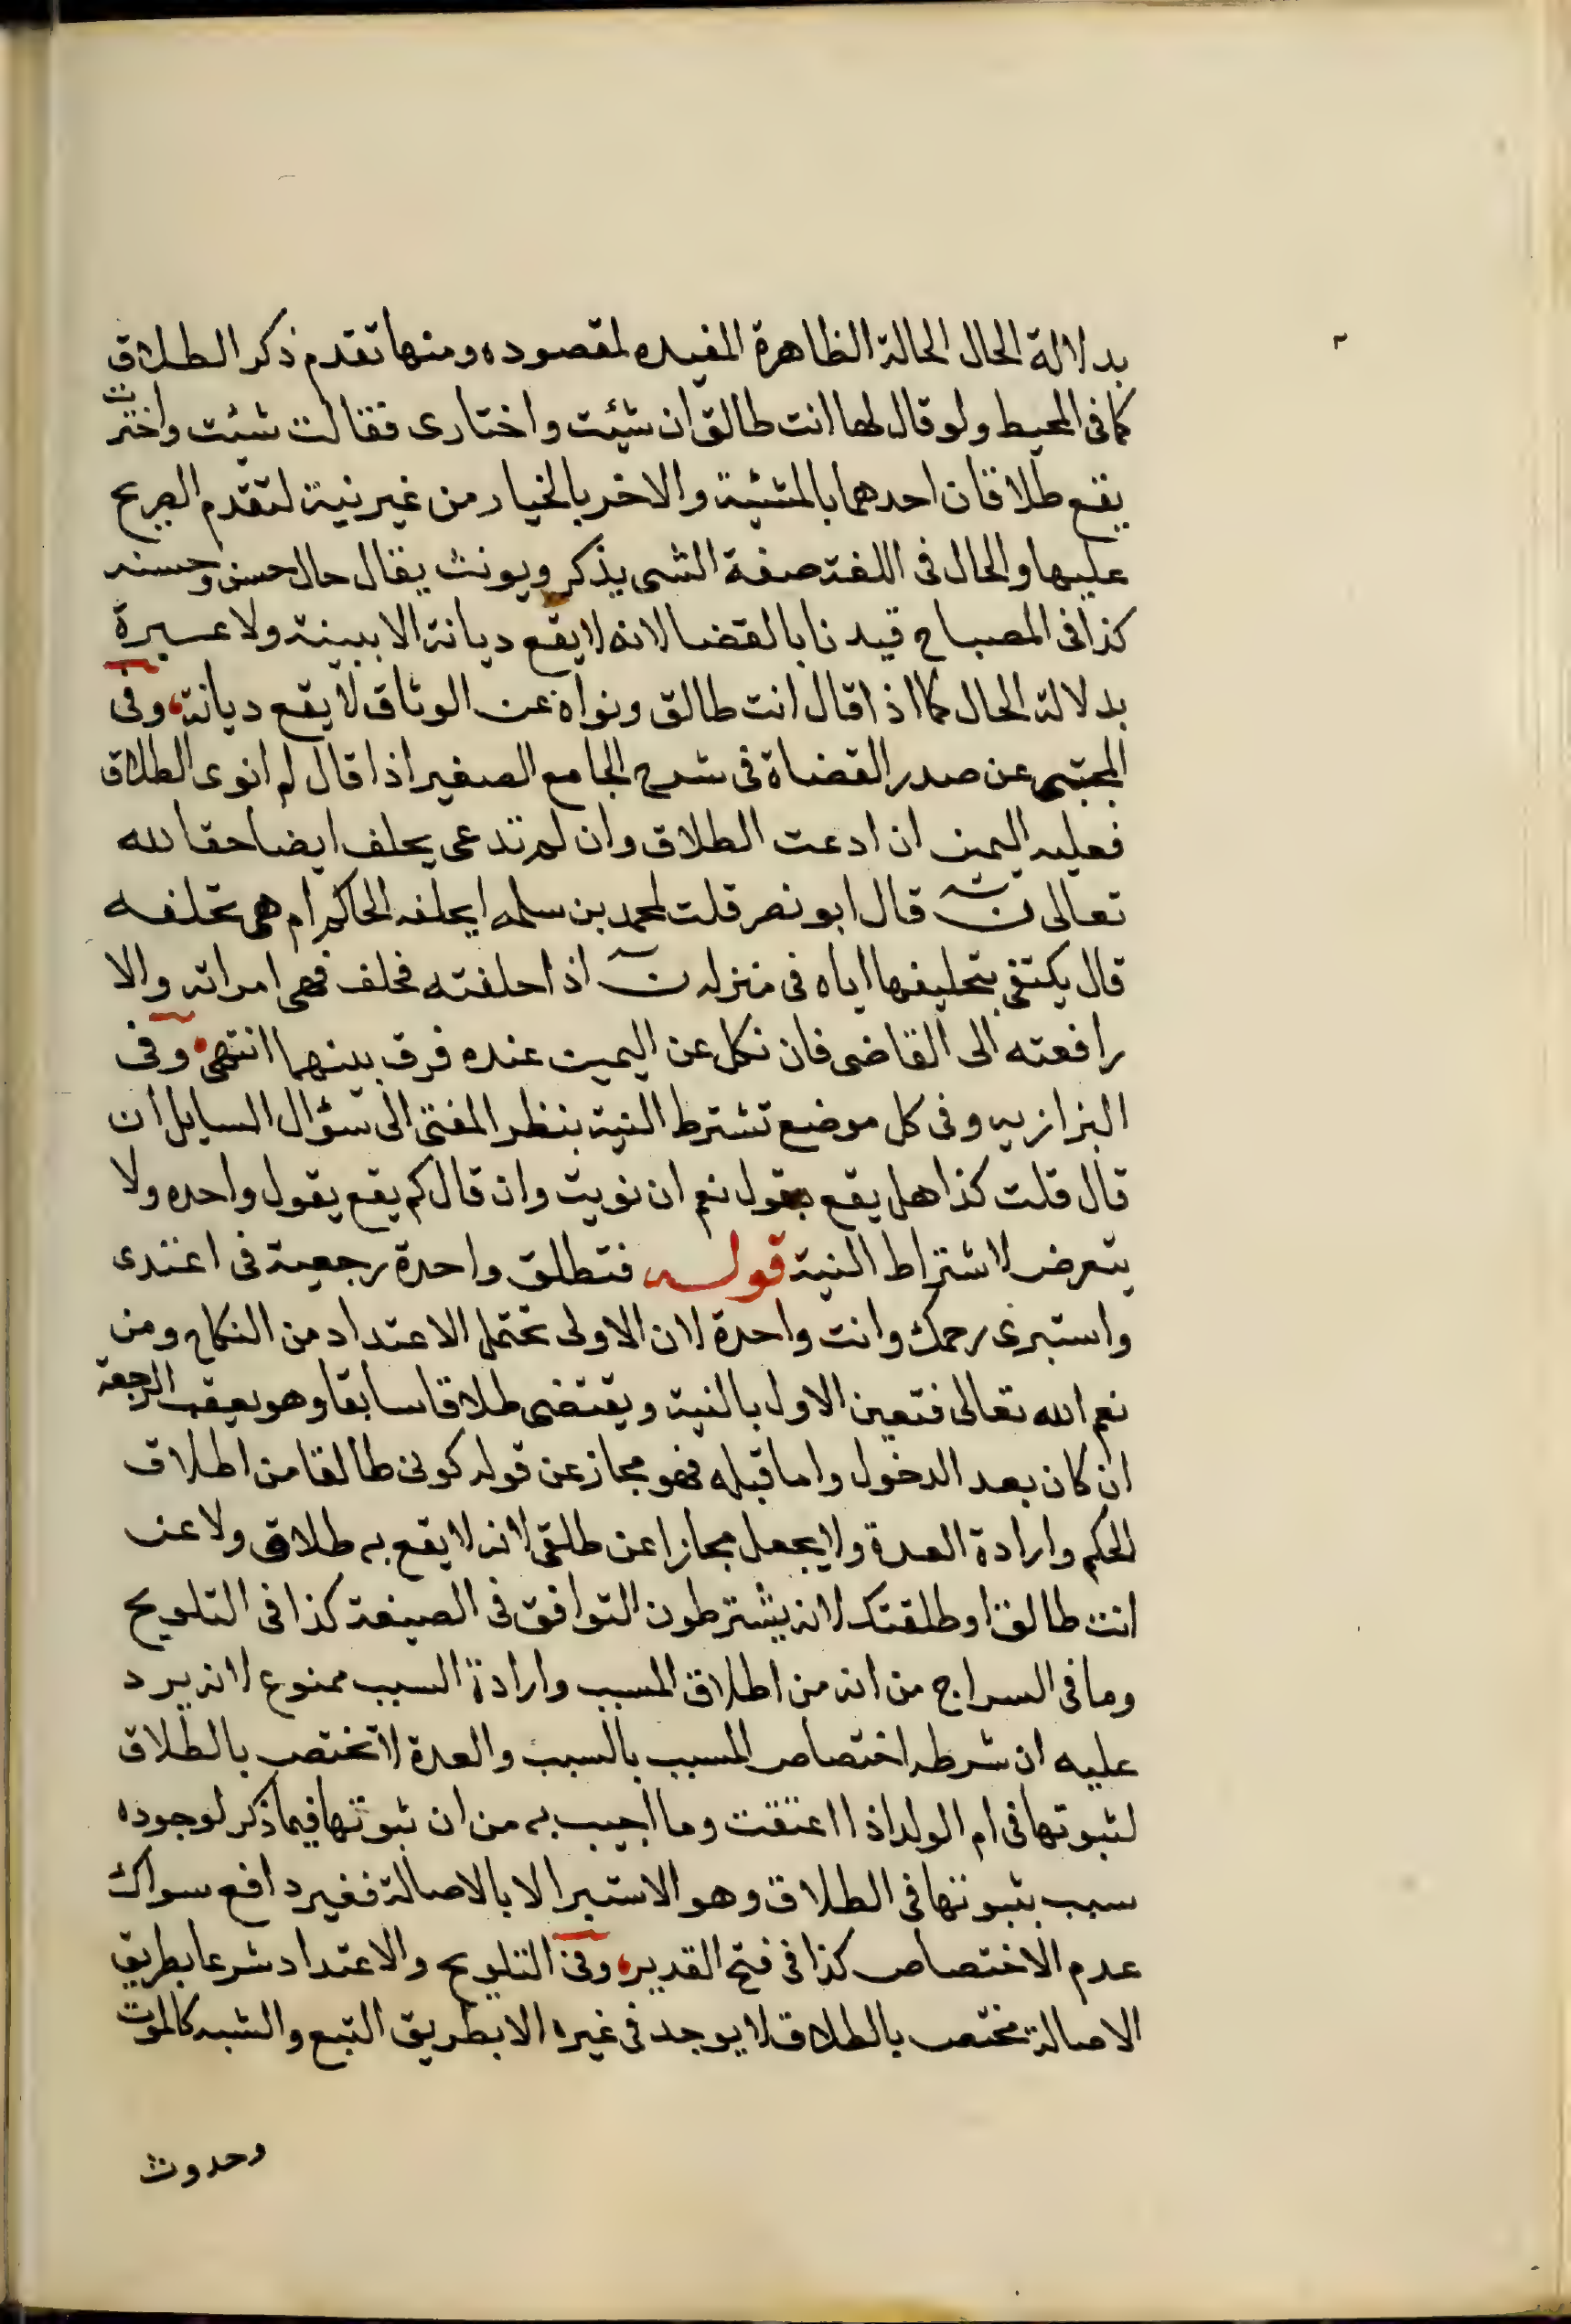 ٢
بدلالة الحال الحالة الظاهرة المفيده لمقصوده ومنها تقدم ذكر الطلاق
كما فى المحيط ولو قال لها انت طالق ان شئت واختارى فقالت شئت واخترت
يقع طلاقان احدهما بالمشئية والاخر بالخيار من غير نية لتقدم الصريح
عليها والحال فى اللغة صفة الشى يذكر ويونث يقال حال حسن وحسنه
كذا فى المصباح قيدنا بالقضا لانه لا يقع ديانة الا ببينة ولا عبرة
بدلالة الحال كما اذا قال انت طالق ونواه عن الوثاق لا يقع ديانة، وفى
المجتبى عن صدر القضاة فى شرح الجامع الصغير اذا قال لم انوى الطلاق
فعليه اليمين ان ادعت الطلاق وان لم تدعى يحلف ايضا حقا لله
تعالى ن قال ابو نصر قلت لمحمد بن سلمه ايحلفه الحاكم ام هى تحلفه
قال يكتفى بتحليفها اياه فى منزله ن اذا حلفته فحلف فهى امراته والا
رافعته الى القاضى فان نكل عن اليمين عنده فرق بينهما انتهى، وفى
البزازيه وفى كل موضع تشترط النية ينظر المفتى الى سؤال السايل ان
قال قلت كذا هل يقع يقول نعم ان نويت وان قال كم يقع يقول واحده ولا
يتعرض لاشتراط النية قوله فتطلق واحدة رجعية فى اعتدى
واستبرى رحمك وانت واحدة لان الاولى تحتمل الاعتداد من النكاح ومن
نعم الله تعالى فتعين الاول بالنية ويقتضى طلاقا سابقا وهو يعقب الرجعة
ان كان بعد الدخول واما قبله فهو مجاز عن قوله كونى طالقا من اطلاق
الحكم وارادة العدة ولا يجعل مجازا عن طلقى لانه لا يقع به طلاق ولا عن
انت طالق او طلقتك لانه يشترطون التوافق فى الصيغة كذا فى التلويح
وما فى السراج من انه من اطلاق المسبب وارادة السبب ممنوع لانه يرد
عليه ان شرطه اختصاص المسبب بالسبب والعدة لا تختص بالطلاق
لثبوتها فى ام الولد اذا اعتقت وما اجيب به من ان ثبوتها فيما ذكر لوجوده
سبب بثبوتها فى الطلاق وهو الاستبرا لا بالاصالة فغير دافع سواك
عدم الاختصاص كذا فى فتح القدير، وفى التلويح والاعتداد شرعا بطريق
الاصالة مختص بالطلاق لا يوجد فى غيره الا بطريق التبع والشبه كالموت
وحدوث